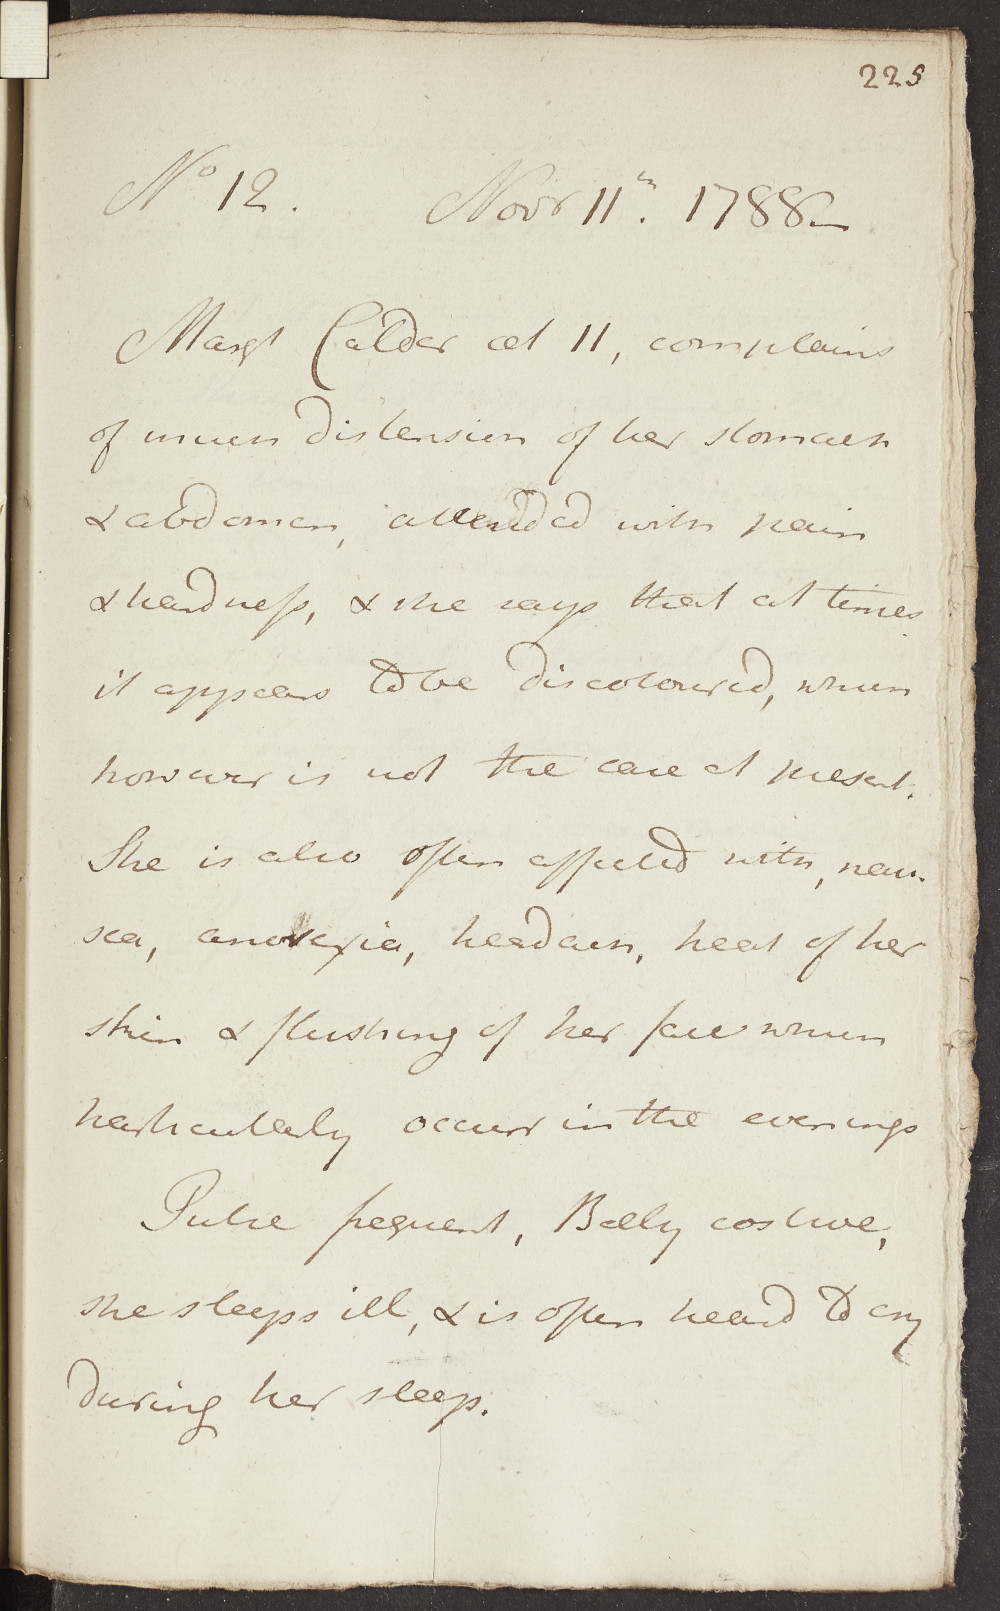 225
No 12. Novr 11th. 1788_
Margt Calder æt 11, complains
of much distension of her stomach
& abdomen, attended with pain
& hardness, & she says that at times
it appears to be discoloured, which
however is not the case at present.
She is also often affected with, nau-
sea, anorexia, headach, heat of her
skin & flushing of her face which
particularly occurr in the evenings
Pulse frequent, Belly costive,
she sleeps ill, & is often heard to cry
during her sleep.